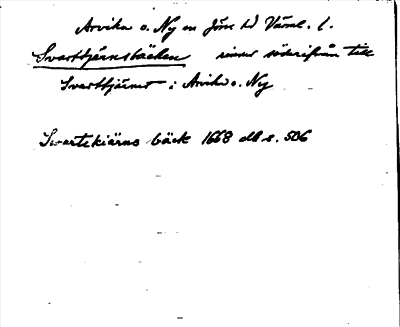 Arvika o. Ny sn Jösse hd Värml. l.
Svarttjärnsbäcken rinner söderifrån till
Svarttjärnet i Arvika o. Ny
Svartekiärns bäck 1668 dll s. 506